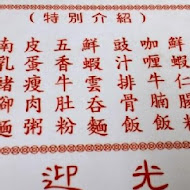 （特別介紹）
鮮蝦仁腸粉
咖喱牛腩飯
豉汁排骨飯
鮮蝦雲吞麵
五香牛肚粉
皮蛋瘦肉粥
南乳豬腳麵
迎光